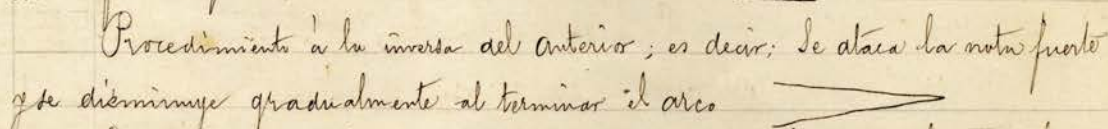 Procedimiento à la inversa del anterior; es decir; Se atáca la nota fuerte
y se disminuye gradualmente al terminar el arco